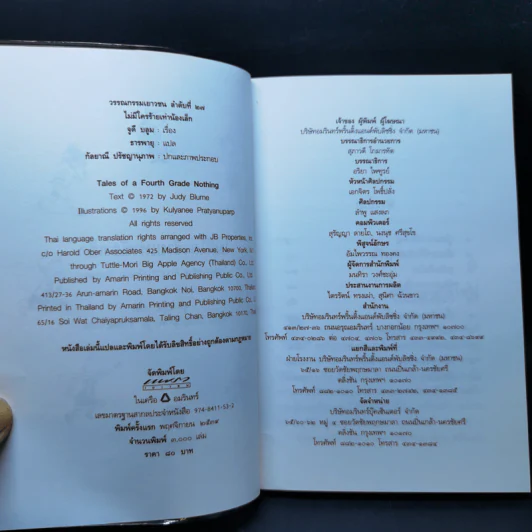 วรรณกรรมเยาวชน ลำดับที่ ๒๗
ไม่มีใครร้ายเท่าน้องเล็ก
จูดี บลูม : เรื่อง
ธารพายุ : แปล
กัลยาณี ปรัชญานุภาพ : ปกและภาพประกอบ
Tales of a Fourth Grade Nothing
Text © 1972 by Judy Blume
Illustrations © 1996 by Kulyanee Pratyanuparp
All rights reserved
Thai language translation rights arranged with JB Properties, Inc.
c/o Harold Ober Associates 425 Madison Avenue, New York,
through Tuttle-Mori Big Apple Agency (Thailand) Co., Ltd.
Published by Amarin Printing and Publishing Public Co., Ltd.
413/27-36 Arun-amarin Road, Bangkok Noi, Bangkok 10700,
Printed in Thailand by Amarin Printing and Publishing Public Co.,
65/16 Soi Wat Chaiyapruksamala, Taling Chan, Bangkok 10170,
หนังสือเล่มนี้แปลและพิมพ์โดยได้รับลิขสิทธิ์อย่างถูกต้องตามกฎหมาย
จัดพิมพ์โดย
แพรว
ในเครือ อมรินทร์
เลขมาตรฐานสากลประจำหนังสือ
พิมพ์ครั้งแรก พฤศจิกายน ๒๕๓๙
จำนวนพิมพ์ ๓,๐๐๐ เล่ม
ราคา ๘๐ บาท
เจ้าของ ผู้พิมพ์ ผู้โฆษณา
บริษัทอมรินทร์พริ้นติ้งแอนด์พับลิชชิ่ง จำกัด (มหาชน)
บรรณาธิการอำนวยการ
สุภาวดี โกมารทัต
บรรณาธิการ
อริยา ไพฑูรย์
หัวหน้าศิลปกรรม
เอกจิตร โพธิ์ปลั่ง
ศิลปกรรม
ลำพู แสงลภ
คอมพิวเตอร์
พิสูจน์อักษร
อัมไพวรรณ ทองคง
ผู้จัดการสำนักพิมพ์
ประสานงานการผลิต
สำนักงาน
บริษัทอมรินทร์พริ้นติ้งแอนด์พับลิชชิ่ง จำกัด (มหาชน)
๔๑๓/๒๗-๓๖ ถนนอรุณอมรินทร์ บางกอกน้อย กรุงเทพฯ ๑๐๗๐๐
แยกสีและพิมพ์ที่
ฝ่ายโรงงาน บริษัทอมรินทร์พริ้นติ้งแอนด์พับลิชชิ่ง จำกัด (มหาชน)
๖๕/๑๖ ซอยวัดชัยพฤกษมาลา ถนนปิ่นเกล้า-นครชัยศรี
ตลิ่งชัน กรุงเทพฯ ๑๐๑๗๐
จัดจำหน่าย
บริษัทอมรินทร์บุ๊คเซ็นเตอร์ จำกัด
หมู่ ๔ ซอยวัดชัยพฤกษมาลา ถนนปิ่นเกล้า-นครชัยศรี
ตลิ่งชัน กรุงเทพฯ ๑๐๑๗๐